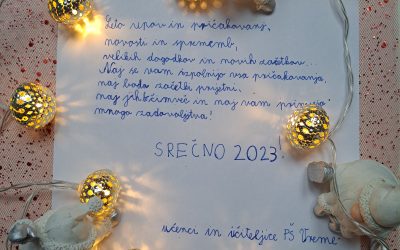 Leto upov in pričakovanj,
novosti in sprememb,
velikih dogodkov in novih začetkov...
Naj se vam izpolnijo vsa pričakovanja,
naj bodo začetki prijetni,
naj jih bo čim več in naj vam prinesejo
mnogo zadovoljstva!
SREČNO 2023
učenci in učiteljice PŠ Vreme